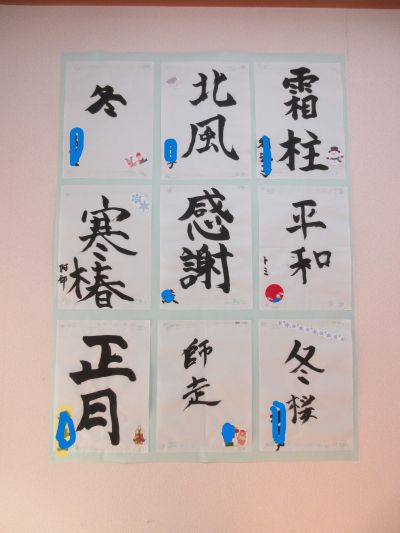 冬
北風
霜柱
寒椿
阿部
感謝
平和
トミ
正月
師走
冬桜